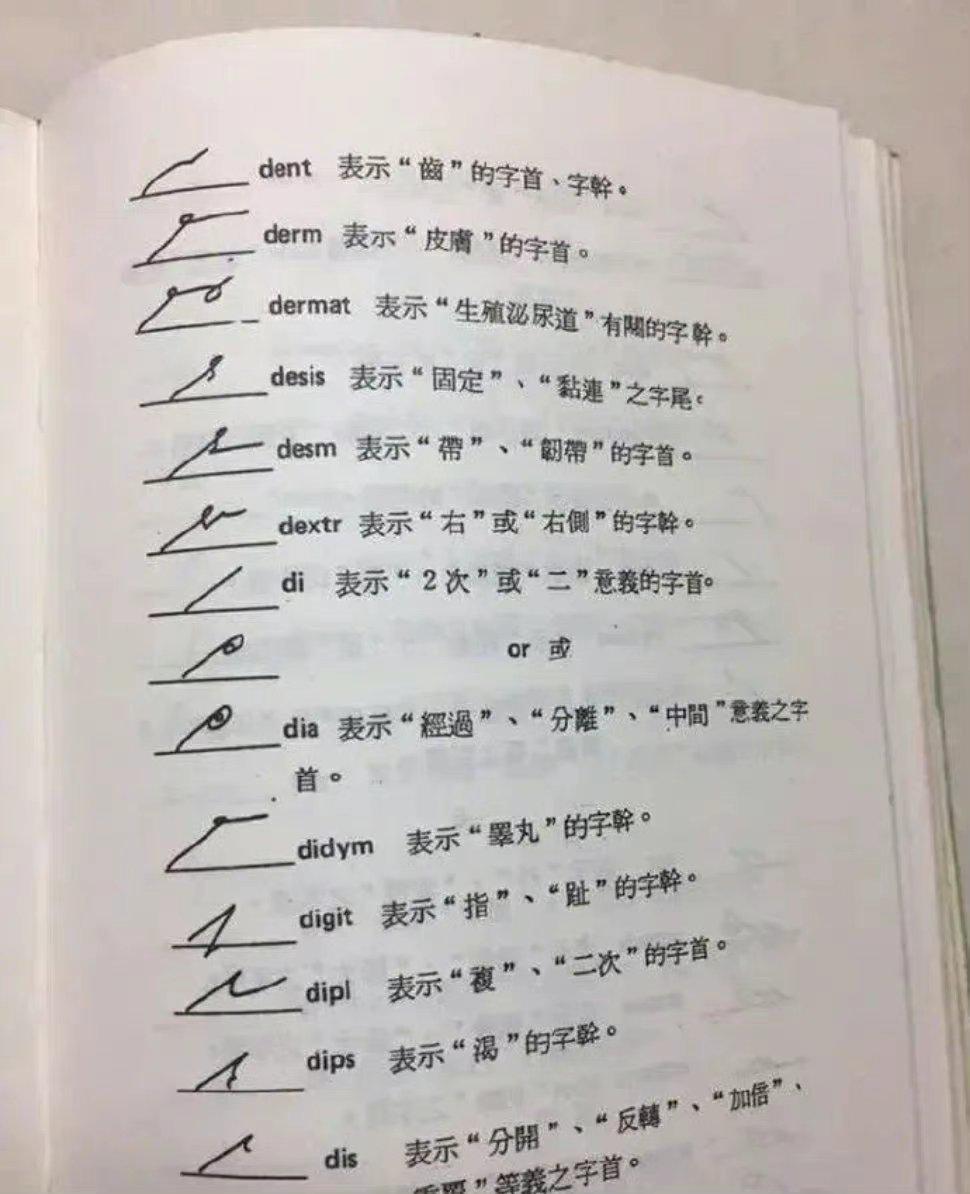 dent 表示“齒”的字首、字幹。
derm 表示“皮膚”的字首。
dermat 表示“生殖泌尿道”有關的字幹。
desis 表示“固定”、“黏連”之字尾。
desm 表示“帶”、“韌帶”的字首。
dextr 表示“右”或“右側”的字幹。
di 表示“2次”或“二”意義的字首。
or 或
dia 表示“經過”、“分離”、“中間”意義之字
首。
didym 表示“睪丸”的字幹。
digit 表示“指”、“趾”的字幹。
dipl 表示“複”、“二次”的字首。
dips 表示“渴”的字幹。
dis 表示“分開”、“反轉”、“加倍”、
”等義之字首。